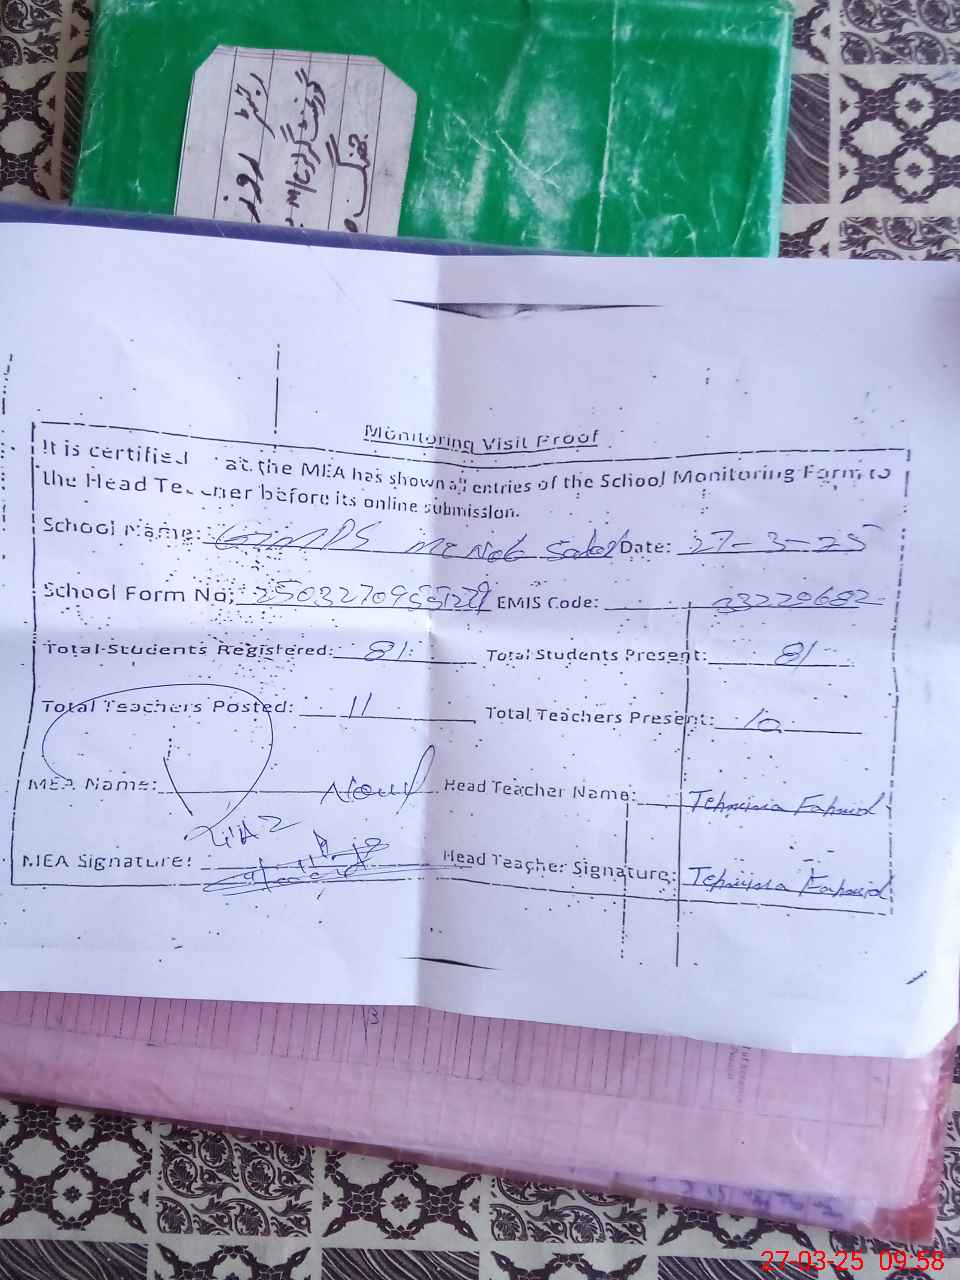 رجسٹر
روز
گورنمنٹ گرلز
جھنگ
Monitoring Visit Proof
It is certified at the MEA has shown all entries of the School Monitoring Form to
the Head Teacher before its online submission.
School Name: GGMPS Date: 27-3-25
School Form No: EMIS Code: 33220682
Total Students Registered: 81 Total Students Present: 81
Total Teachers Posted: 11 Total Teachers Present: 10
MEA Name: Head Teacher Name: Tehmina Fahmid
MEA Signature: Head Teacher Signature: Tehmina Fahmid
27-03-25 09:58